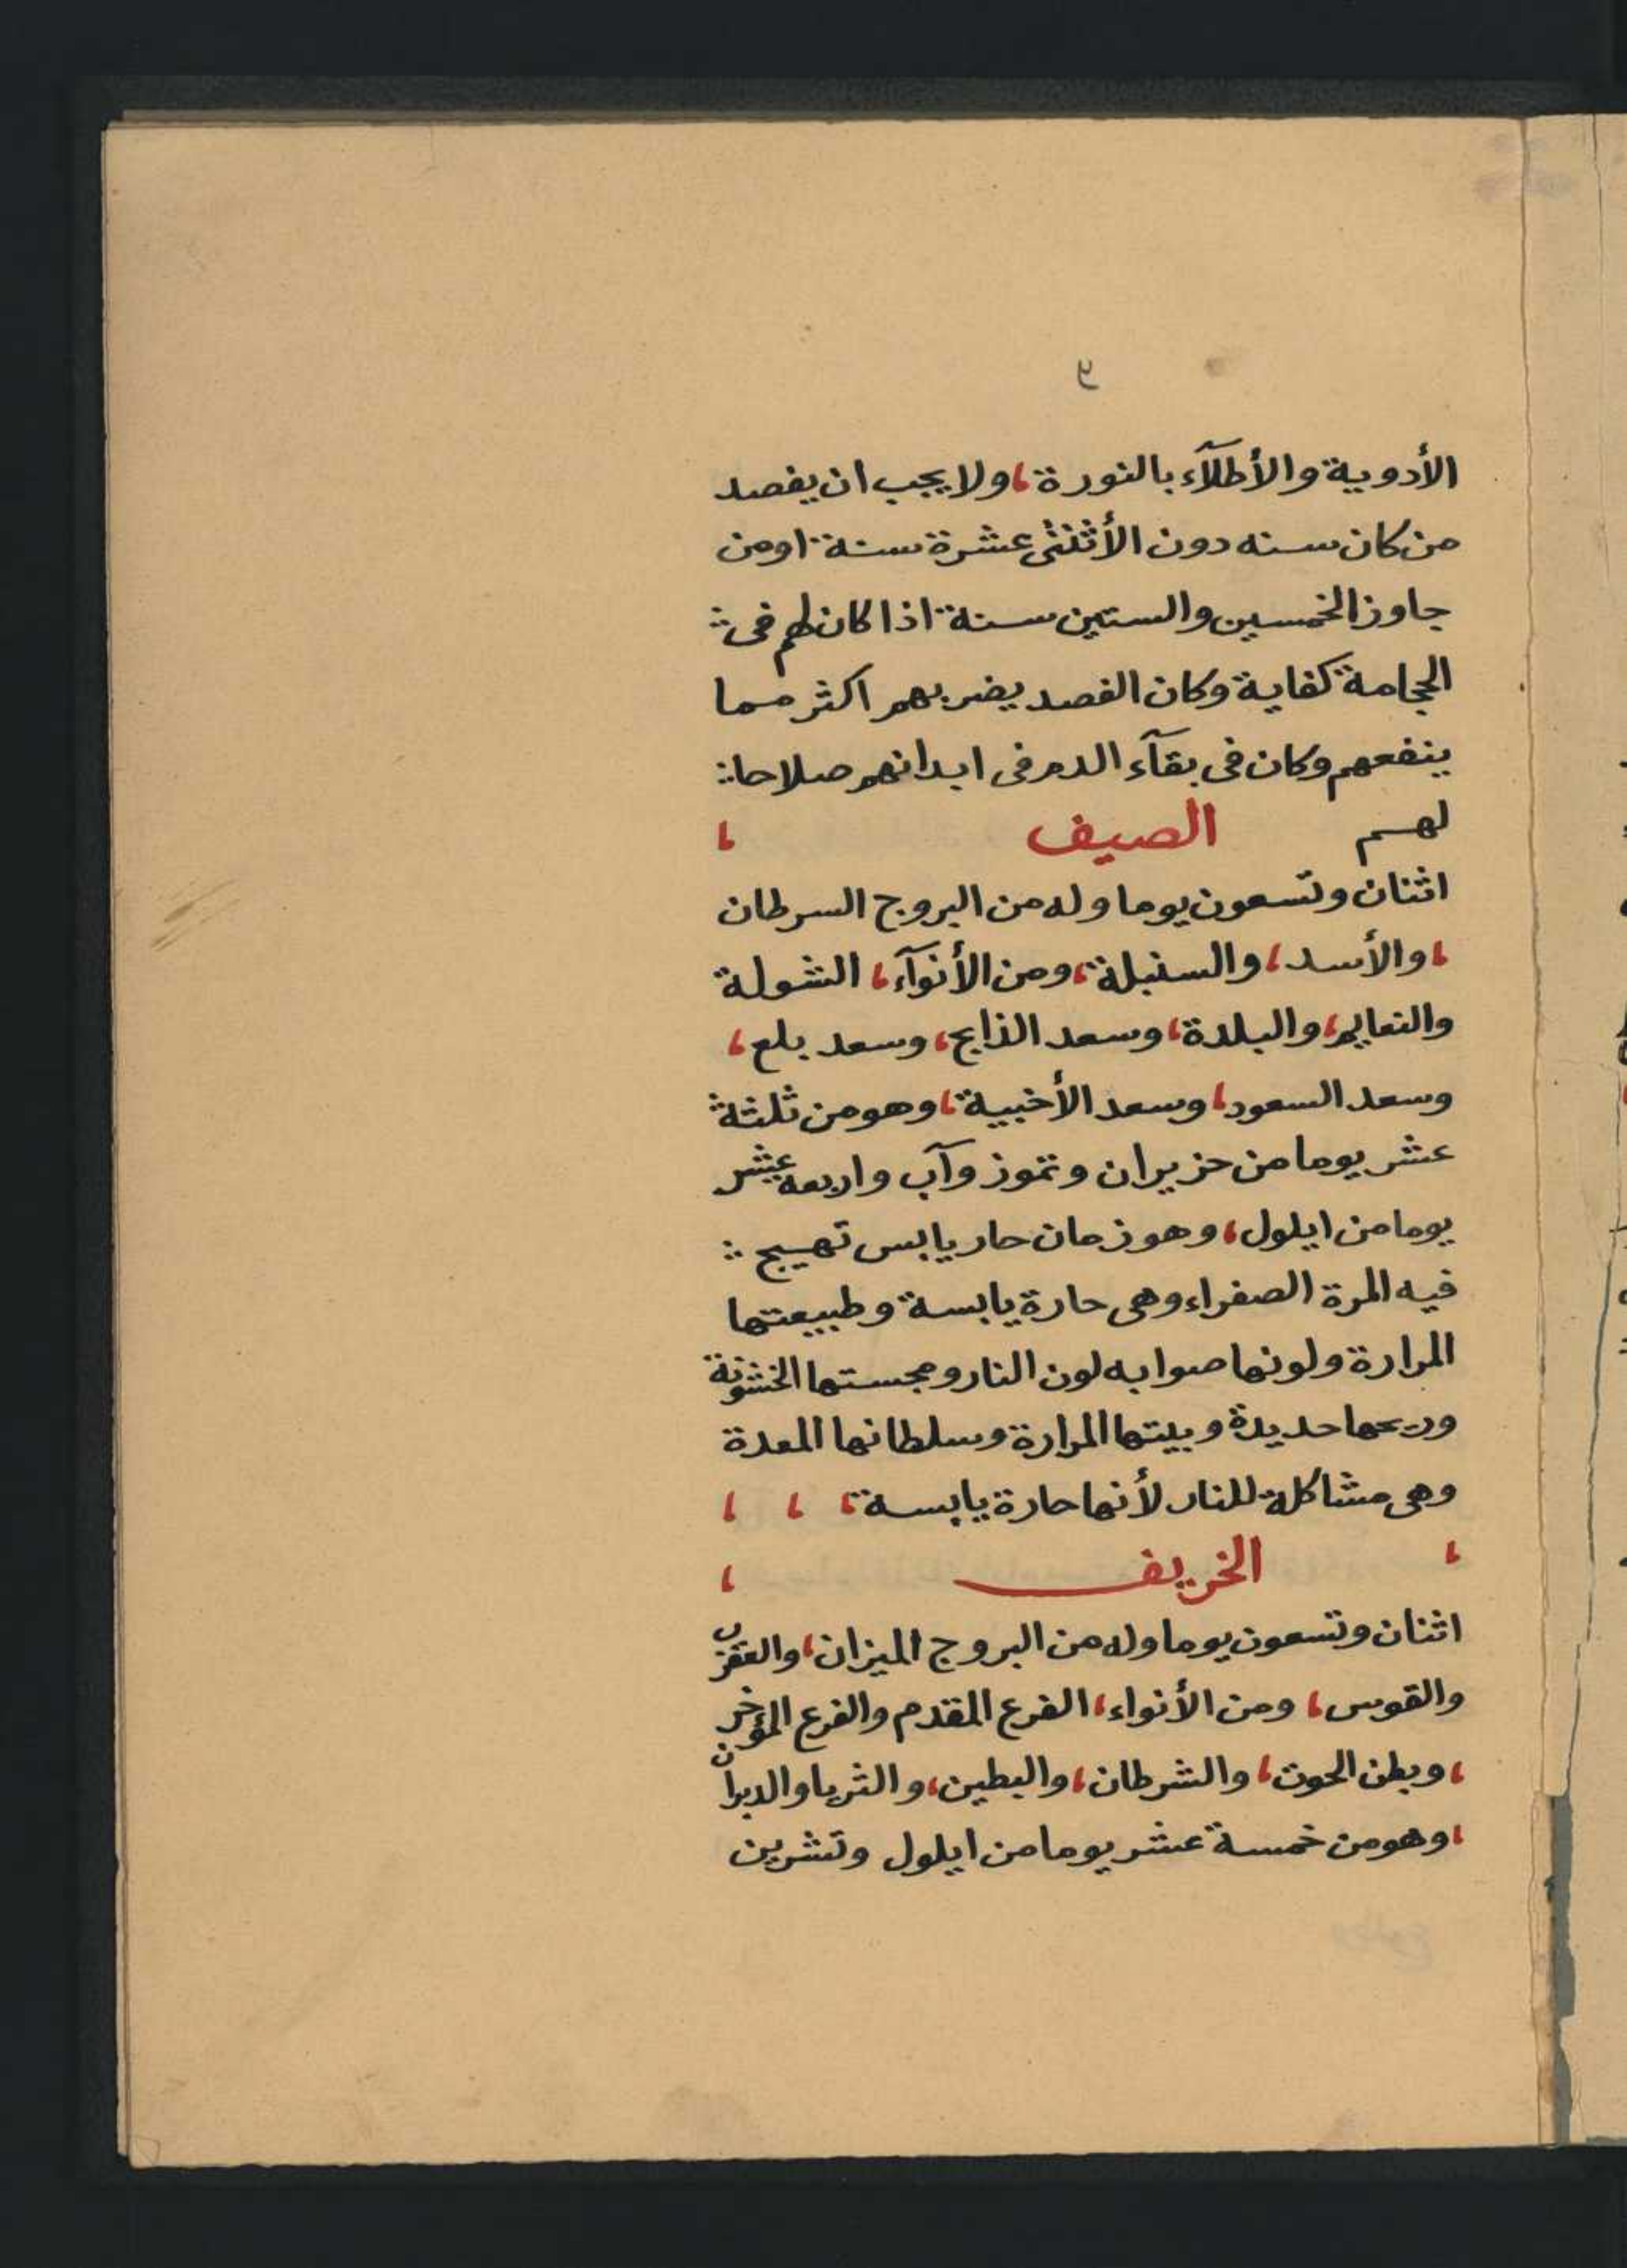 ٩
الأدوية والأطلآء بالنورة، ولا يجب ان يفصد
من كان سنه دون الأثنتى عشرة سنة اومن
جاوز الخمسين والستين سنة اذا كان لهم فى
الحجامة كفاية وكان الفصد يضر بهم اكثر مما
ينفعهم وكان فى بقآء الدم فى ابدانهم صلاحا
لهم الصيف ،
اثنان وتسعون يوما وله من البروج السرطان
، والأسد، والسنبلة، ومن الأنوآء، الشولة
والنعايم، والبلدة، وسعد الذابح، وسعد بلع،
وسعد السعود، وسعد الأخبية، وهو من ثلثة
عشر يوما من حزيران وتموز وآب واربعه عشر
يوما من ايلول، وهو زمان حار يابس تهيج
فيه المرة الصفراء وهى حارة يابسة وطبيعتها
المرارة ولونها صوابه لون النار ومجستها الخشونة
وريحها حديدة وبيتها المرارة وسلطانها المعدة
وهى مشاكلة للنار لأنها حارة يابسة، ، ،
، الخريف ،
اثنان وتسعون يوما وله من البروج الميزان، والعقرب
والقوس، ومن الأنواء، الفرع المقدم والفرع المؤخر
، وبطن الحوت، والشرطان، والبطين، والثريا والدبران
، وهو من خمسة عشر يوما من ايلول وتشرين